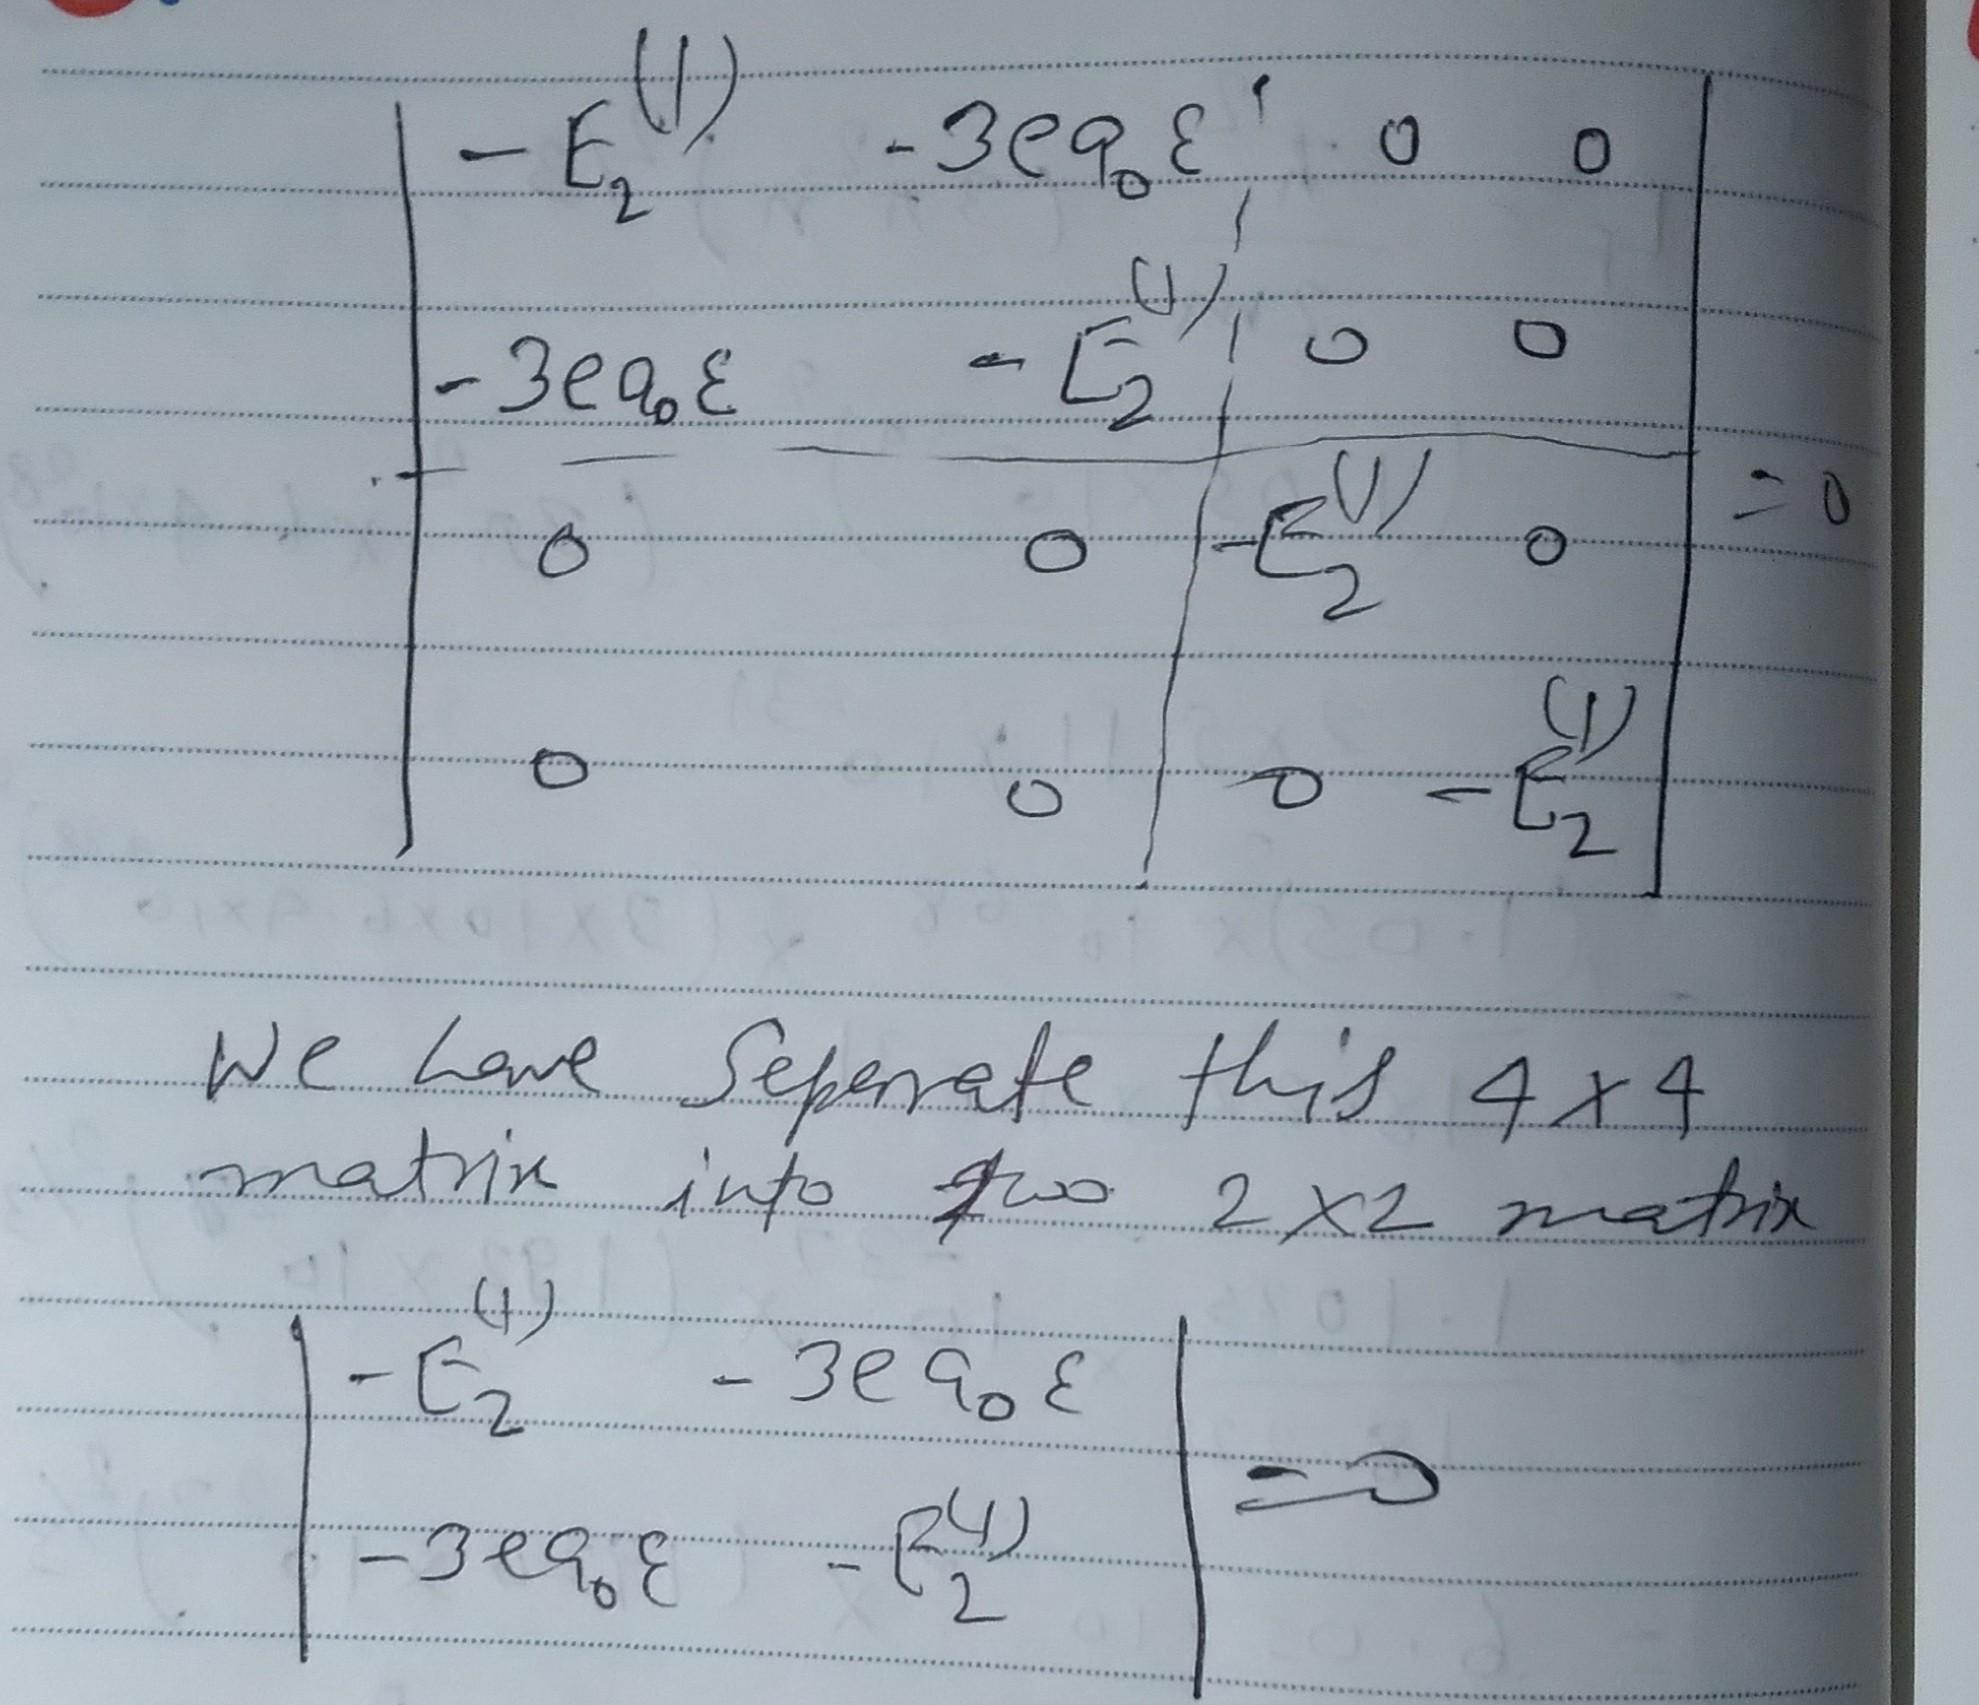 -E₂⁽¹⁾ -3ea₀ε 0 0
-3ea₀ε -E₂⁽¹⁾ 0 0
= 0
0 0 -E₂⁽¹⁾ 0
0 0 0 -E₂⁽¹⁾
We have Seperate this 4x4
matrix into two 2x2 matrix
-E₂⁽¹⁾ -3ea₀ε
= 0
-3ea₀ε -E₂⁽¹⁾